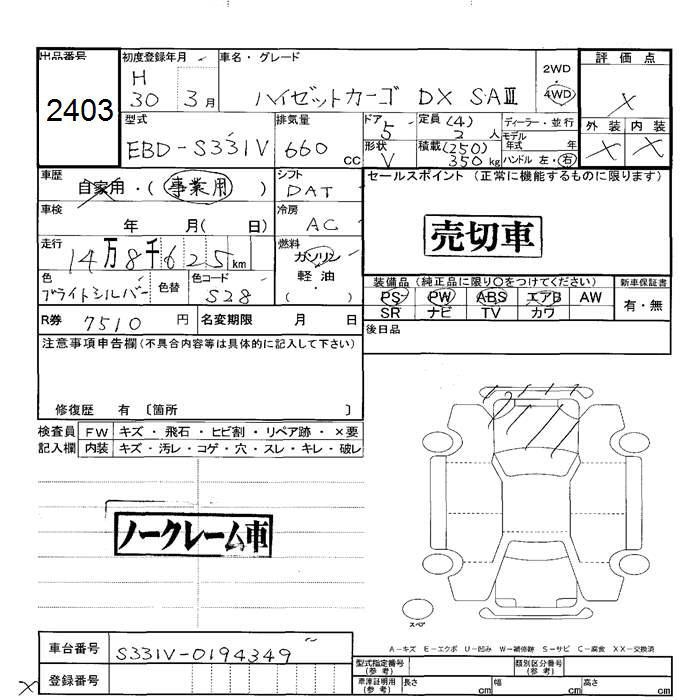 出品番号
2403
初度登録年月
H
30 3月
車名・グレード
ハイゼットカーゴ DX SAⅢ
2WD
・
4WD
評価点
X
外装 内装
X X
型式
EBD-S331V
排気量
660 cc
ドア
5
定員 (4)
2 人
ディーラー・並行
モデル
年式 年
形状
V
積載 (250)
350 kg
ハンドル 左・右
車歴
自家用・(事業用)
シフト
DAT
セールスポイント (正常に機能するものに限ります)
売切車
車検
年 月( 日)
冷房
AC
走行
14万8千625km
燃料
ガソリン
軽油
( )
色
ブライトシルバー
色替
色コード
S28
装備品 (純正品に限り○をつけてください)
新車保証書
PS PW ABS エアB AW
有・無
SR ナビ TV カワ
R券 7510 円
名変期限 月 日
後日品
注意事項申告欄(不具合内容等は具体的に記入して下さい)
修復歴 有 〔箇所 〕
検査員
記入欄
FW キズ・飛石・ヒビ割・リペア跡・×要
内装 キズ・汚レ・コゲ・穴・スレ・キレ・破レ
ノークレーム車
スペア
A-キズ E-エクボ U-凹み W-補修跡 S-サビ C-腐食 XX-交換済
車台番号 S331V-0194349
登録番号
X
型式指定番号
(参考)
類別区分番号
(参考)
車庫証明用
(参考)
長さ cm 幅 cm 高さ cm